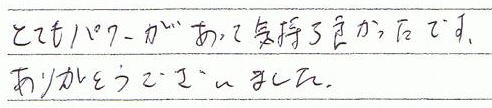 とてもパワーがあって気持ち良かったです。
ありがとうございました。